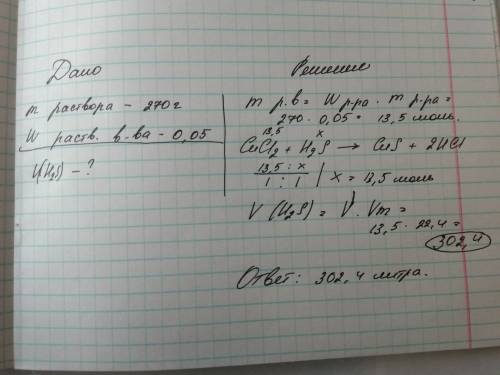 Дано
m раствора - 270 г
W раств. в-ва - 0,05
V(H₂S) - ?
Решение
m р.в = W р-ра · m р-ра =
270 · 0,05 = 13,5 моль.
13,5 x
CuCl₂ + H₂S → CuS + 2HCl
13,5 : x
1 : 1 | x = 13,5 моль
V (H₂S) = V · Vm =
13,5 · 22,4 =
302,4
Ответ: 302,4 литра.